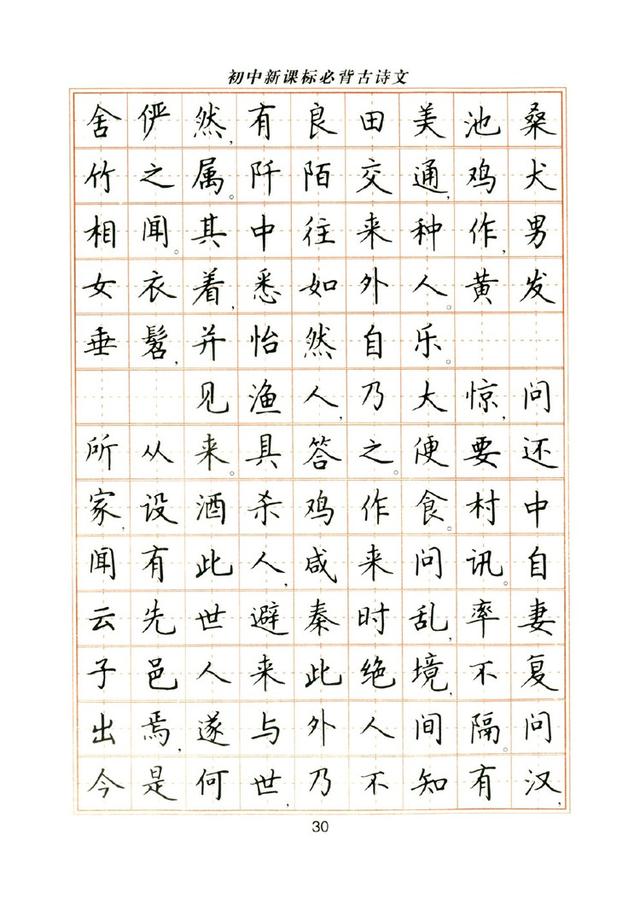 初中新课标必背古诗文
舍俨然,有良田美池桑
竹之属。阡陌交通,鸡犬
相闻。其中往来种作,男
女衣着,悉如外人。黄发
垂髫,并怡然自乐。
见渔人,乃大惊,问
所从来。具答之。便要还
家,设酒杀鸡作食。村中
闻有此人,咸来问讯。自
云先世避秦时乱,率妻
子邑人来此绝境,不复
出焉,遂与外人间隔。问
今是何世,乃不知有汉,
30